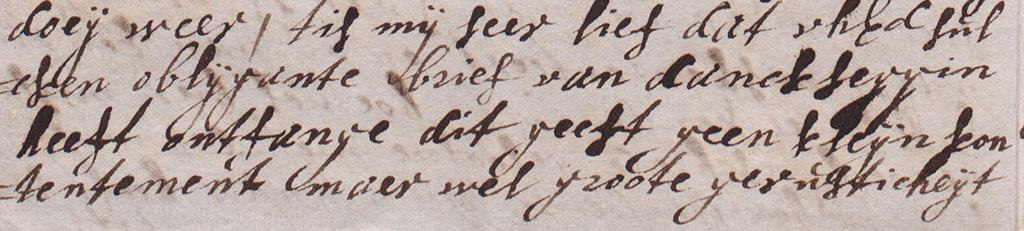 doeÿ weer / tis mÿ seer lief dat vhEd sul
=cken oblÿgante brief van danckseggin
heeft ontfange dit geeft geen kleÿn kon
=tentement maer wel groote gerusticheÿt